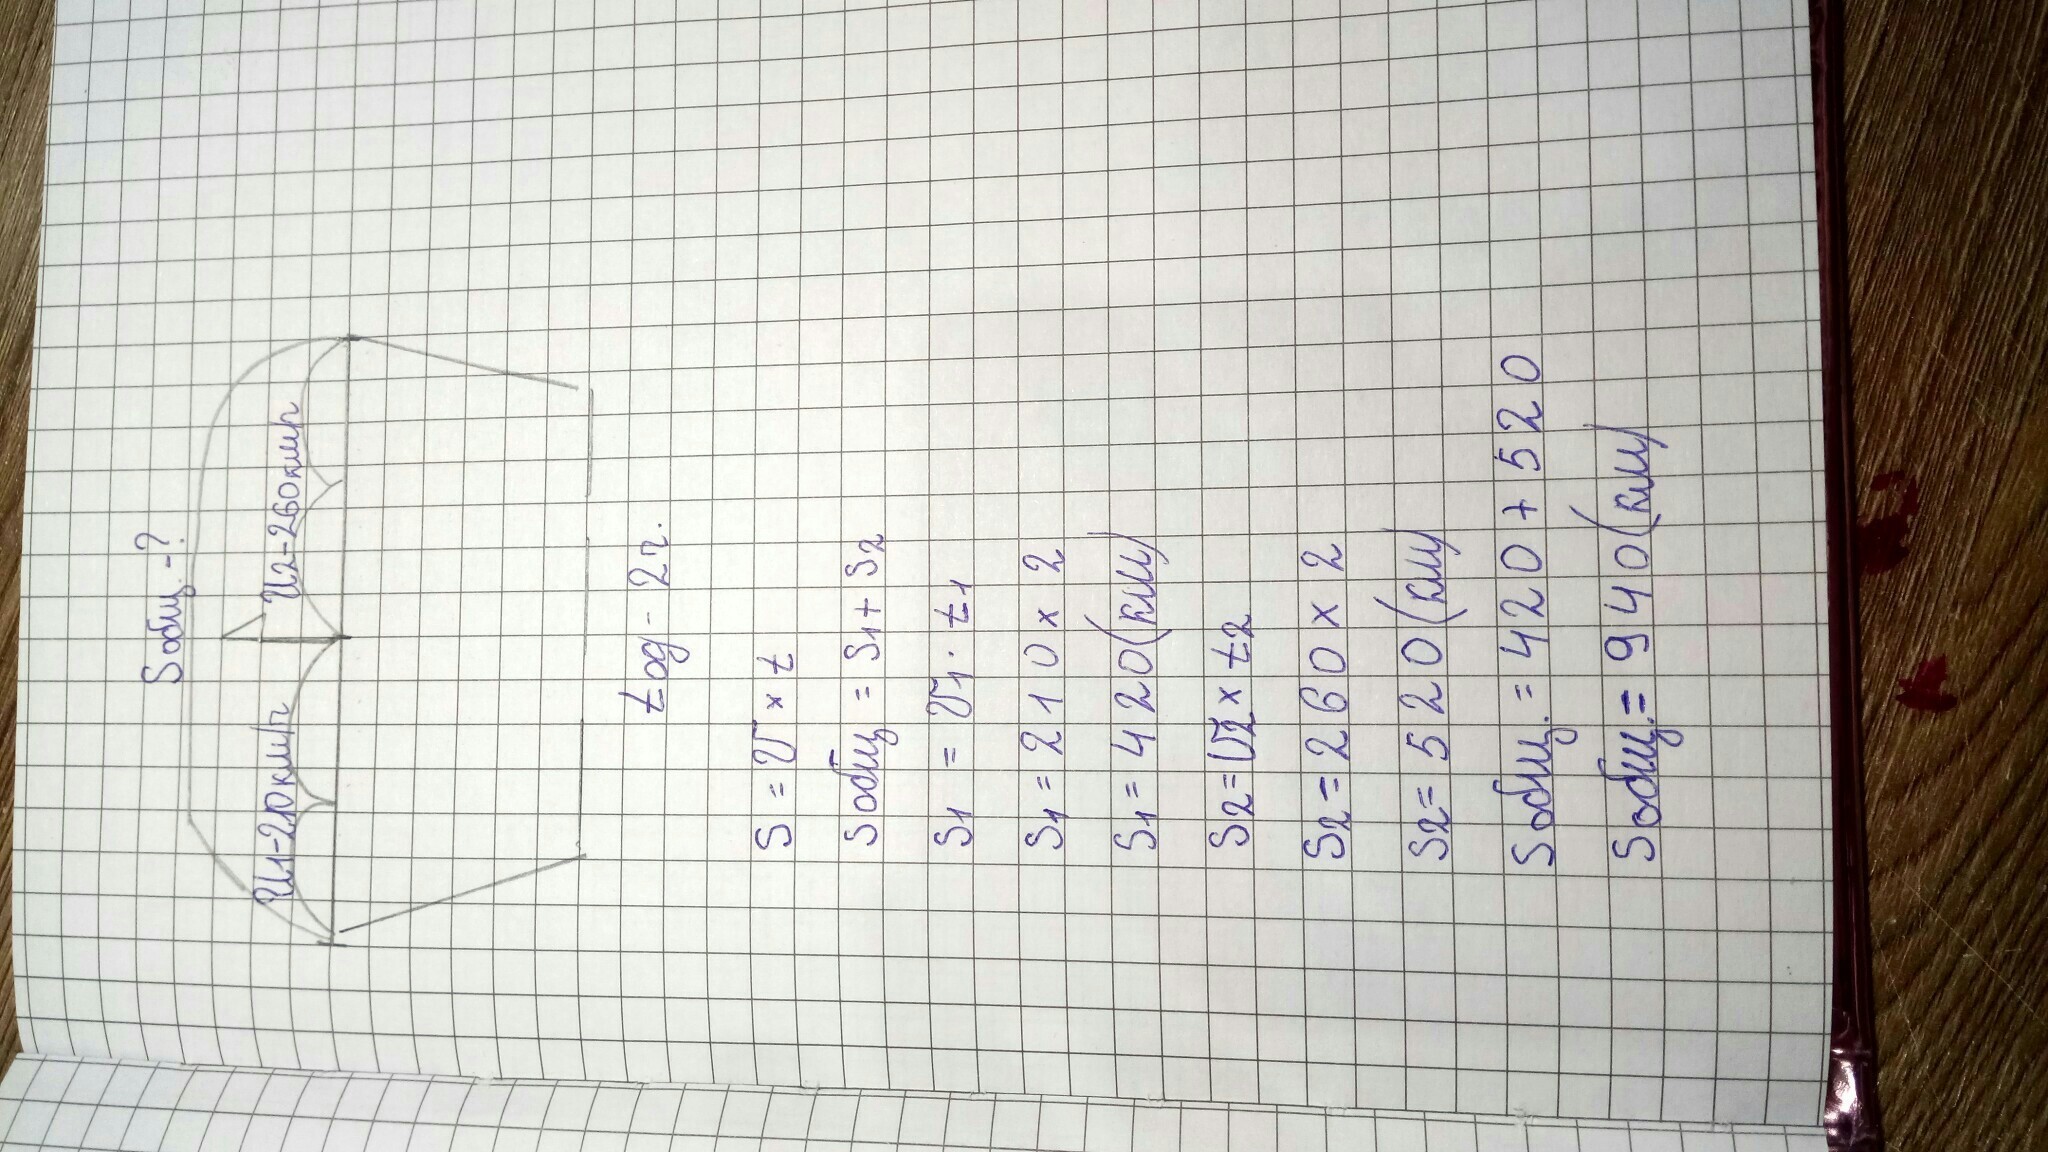 Sобщ.-?
V1-210км/ч V2-260км/ч
tод-2ч.
S=V×t
Sобщ=S1+S2
S1=V1·t1
S1=210×2
S1=420(км)
S2=V2×t2
S2=260×2
S2=520(км)
Sобщ.=420+520
Sобщ.=940(км)